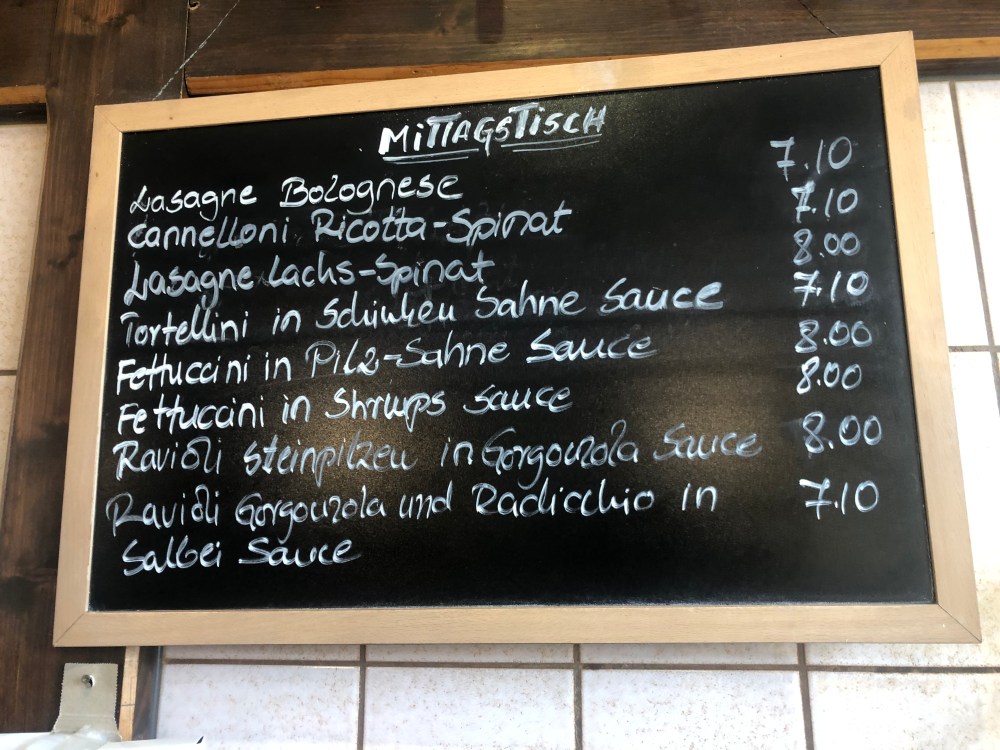 MITTAGSTISCH
Lasagne Bolognese 7.10
Cannelloni Ricotta-Spinat 7.10
Lasagne Lachs-Spinat 8.00
Tortellini in Schinken Sahne Sauce 7.10
Fettuccini in Pilz-Sahne Sauce 8.00
Fettuccini in Shrimps sauce 8.00
Ravioli Steinpilzen in Gorgonzola Sauce 8.00
Ravioli Gorgonzola und Radicchio in 7.10
Salbei Sauce